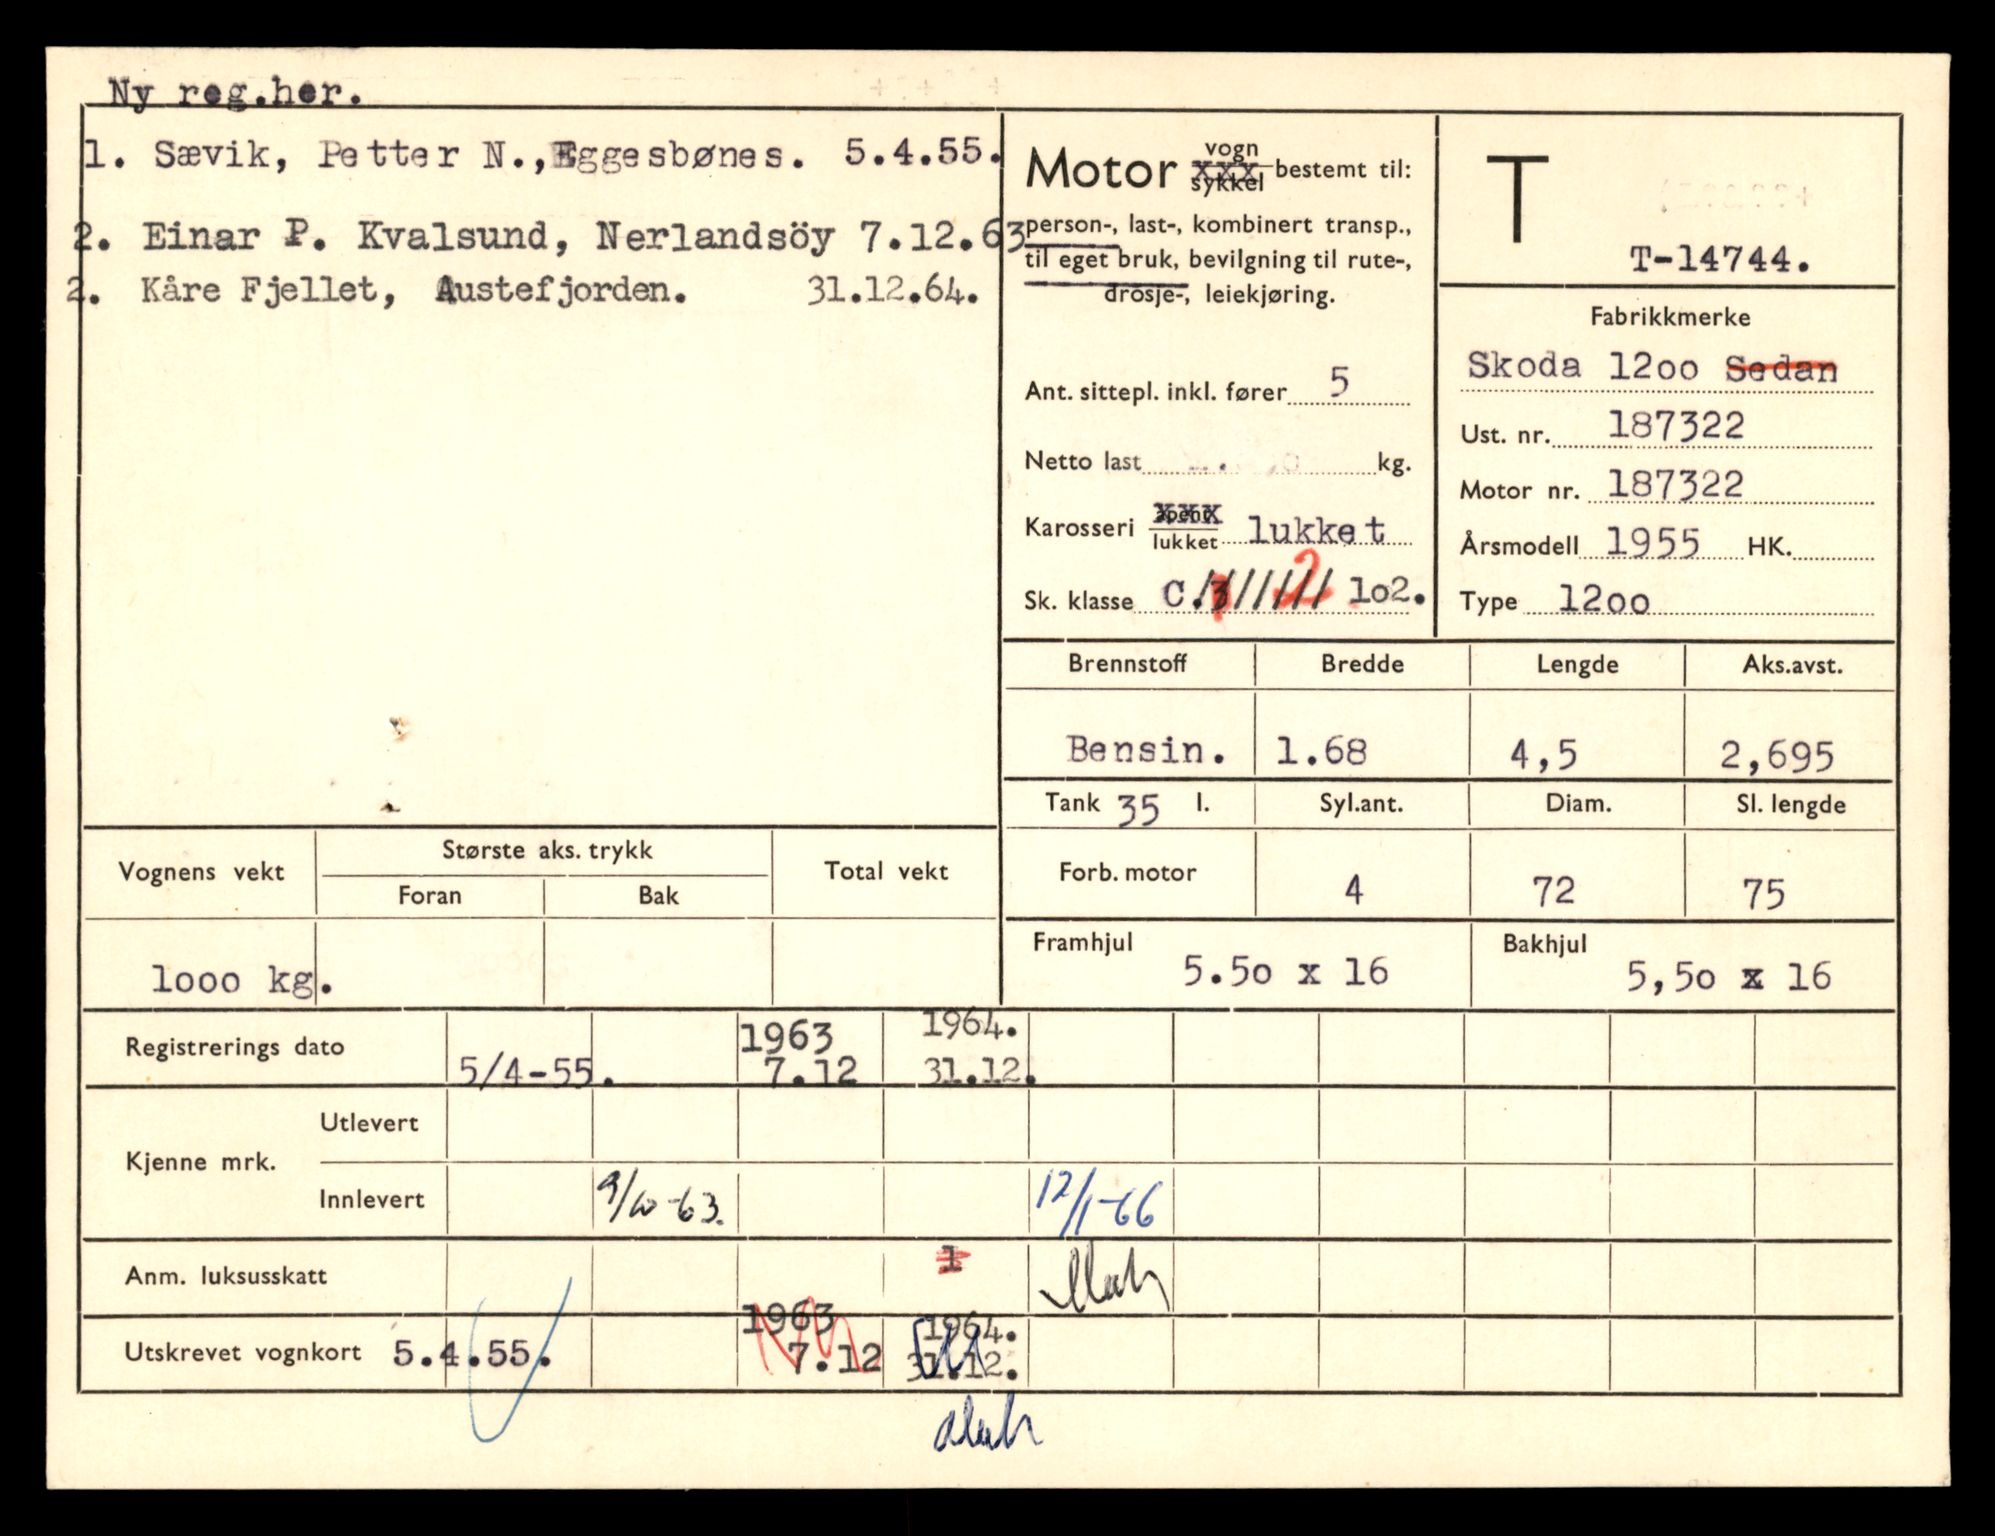 Ny reg.her.
1. Sævik, Petter N., Eggesbønes. 5.4.55.
2. Einar P. Kvalsund, Nerlandsöy 7.12.63
2. Kåre Fjellet, Austefjorden. 31.12.64.
Motor vogn xxx sykkel bestemt til:
person-, last-, kombinert transp.,
til eget bruk, bevilgning til rute-,
drosje-, leiekjøring.
Ant. sittepl. inkl. fører 5
Netto last kg.
Karosseri åpent xxx lukket lukket
Sk. klasse C.3/////// 2 1o2.
T
T-14744.
Fabrikkmerke
Skoda 12oo Sedan
Ust. nr. 187322
Motor nr. 187322
Årsmodell 1955 HK.
Type 12oo
Brennstoff Bredde Lengde Aks.avst.
Bensin. 1.68 4,5 2,695
Tank 35 l. Syl.ant. Diam. Sl. lengde
Forb. motor 4 72 75
Framhjul 5.5o x 16 Bakhjul 5,5o x 16
Vognens vekt Største aks. trykk Total vekt
Foran Bak
1ooo kg.
Registrerings dato 5/4-55. 1963 7.12 1964. 31.12.
Kjenne mrk. Utlevert
Innlevert 9/10-63. 12/1-66
Anm. luksusskatt 1
Utskrevet vognkort 5.4.55. 1963 7.12 1964. 31.12.